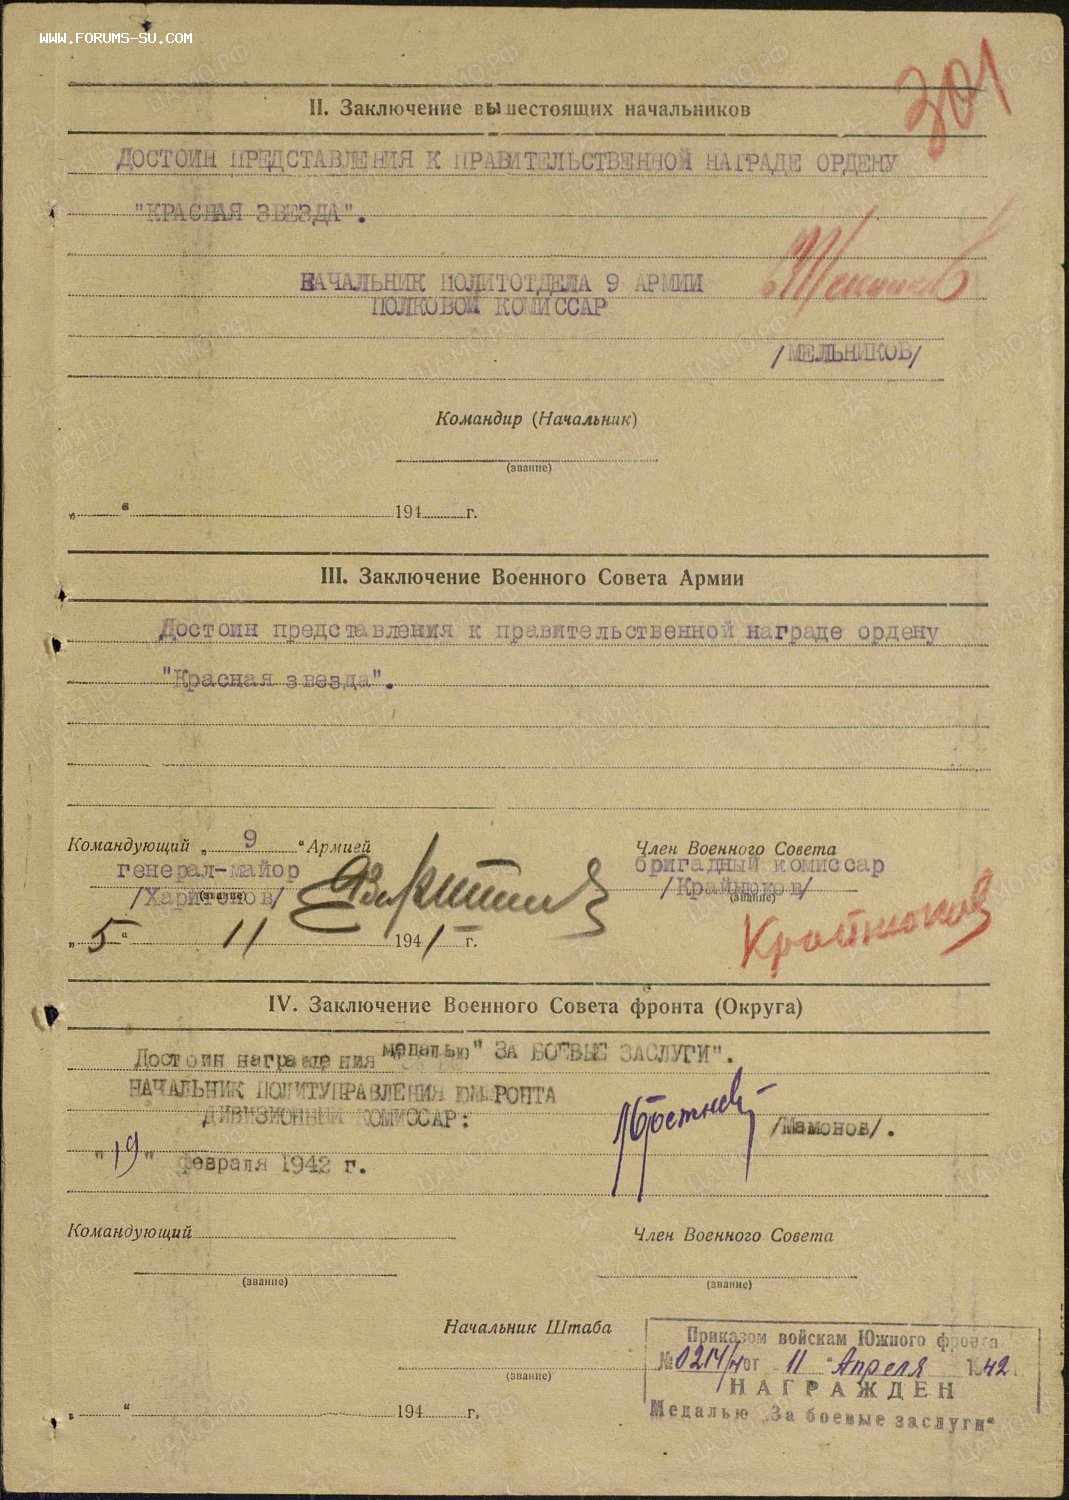 WWW.FORUMS-SU.COM
301
II. Заключение вышестоящих начальников
ДОСТОИН ПРЕДСТАВЛЕНИЯ К ПРАВИТЕЛЬСТВЕННОЙ НАГРАДЕ ОРДЕНУ
"КРАСНАЯ ЗВЕЗДА".
НАЧАЛЬНИК ПОЛИТОТДЕЛА 9 АРМИИ
ПОЛКОВОЙ КОМИССАР
/МЕЛЬНИКОВ/
Командир (Начальник)
(звание)
„ “ 194 г.
III. Заключение Военного Совета Армии
Достоин представления к правительственной награде ордену
"Красная звезда".
Командующий „ 9 “ Армией
Член Военного Совета
генерал-майор
бригадный комиссар
/Харитонов/
/Крайнюков/
(звание)
(звание)
Крайнюков
„ 5 “ 11 1941 г.
IV. Заключение Военного Совета фронта (Округа)
Достоин награждения медалью" ЗА БОЕВЫЕ ЗАСЛУГИ".
НАЧАЛЬНИК ПОЛИТУПРАВЛЕНИЯ ЮЖФРОНТА
ДИВИЗИОННЫЙ КОМИССАР:
/Мамонов/.
"19" февраля 1942 г.
Командующий
Член Военного Совета
(звание)
(звание)
Начальник Штаба
(звание)
„ “ 194 г.
Приказом войскам Южного фронта
№ 0214/н от 11 Апреля 1942 г.
НАГРАЖДЕН
Медалью „За боевые заслуги“